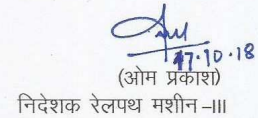 17.10.18
(ओम प्रकाश)
निदेशक रेलपथ मशीन–III